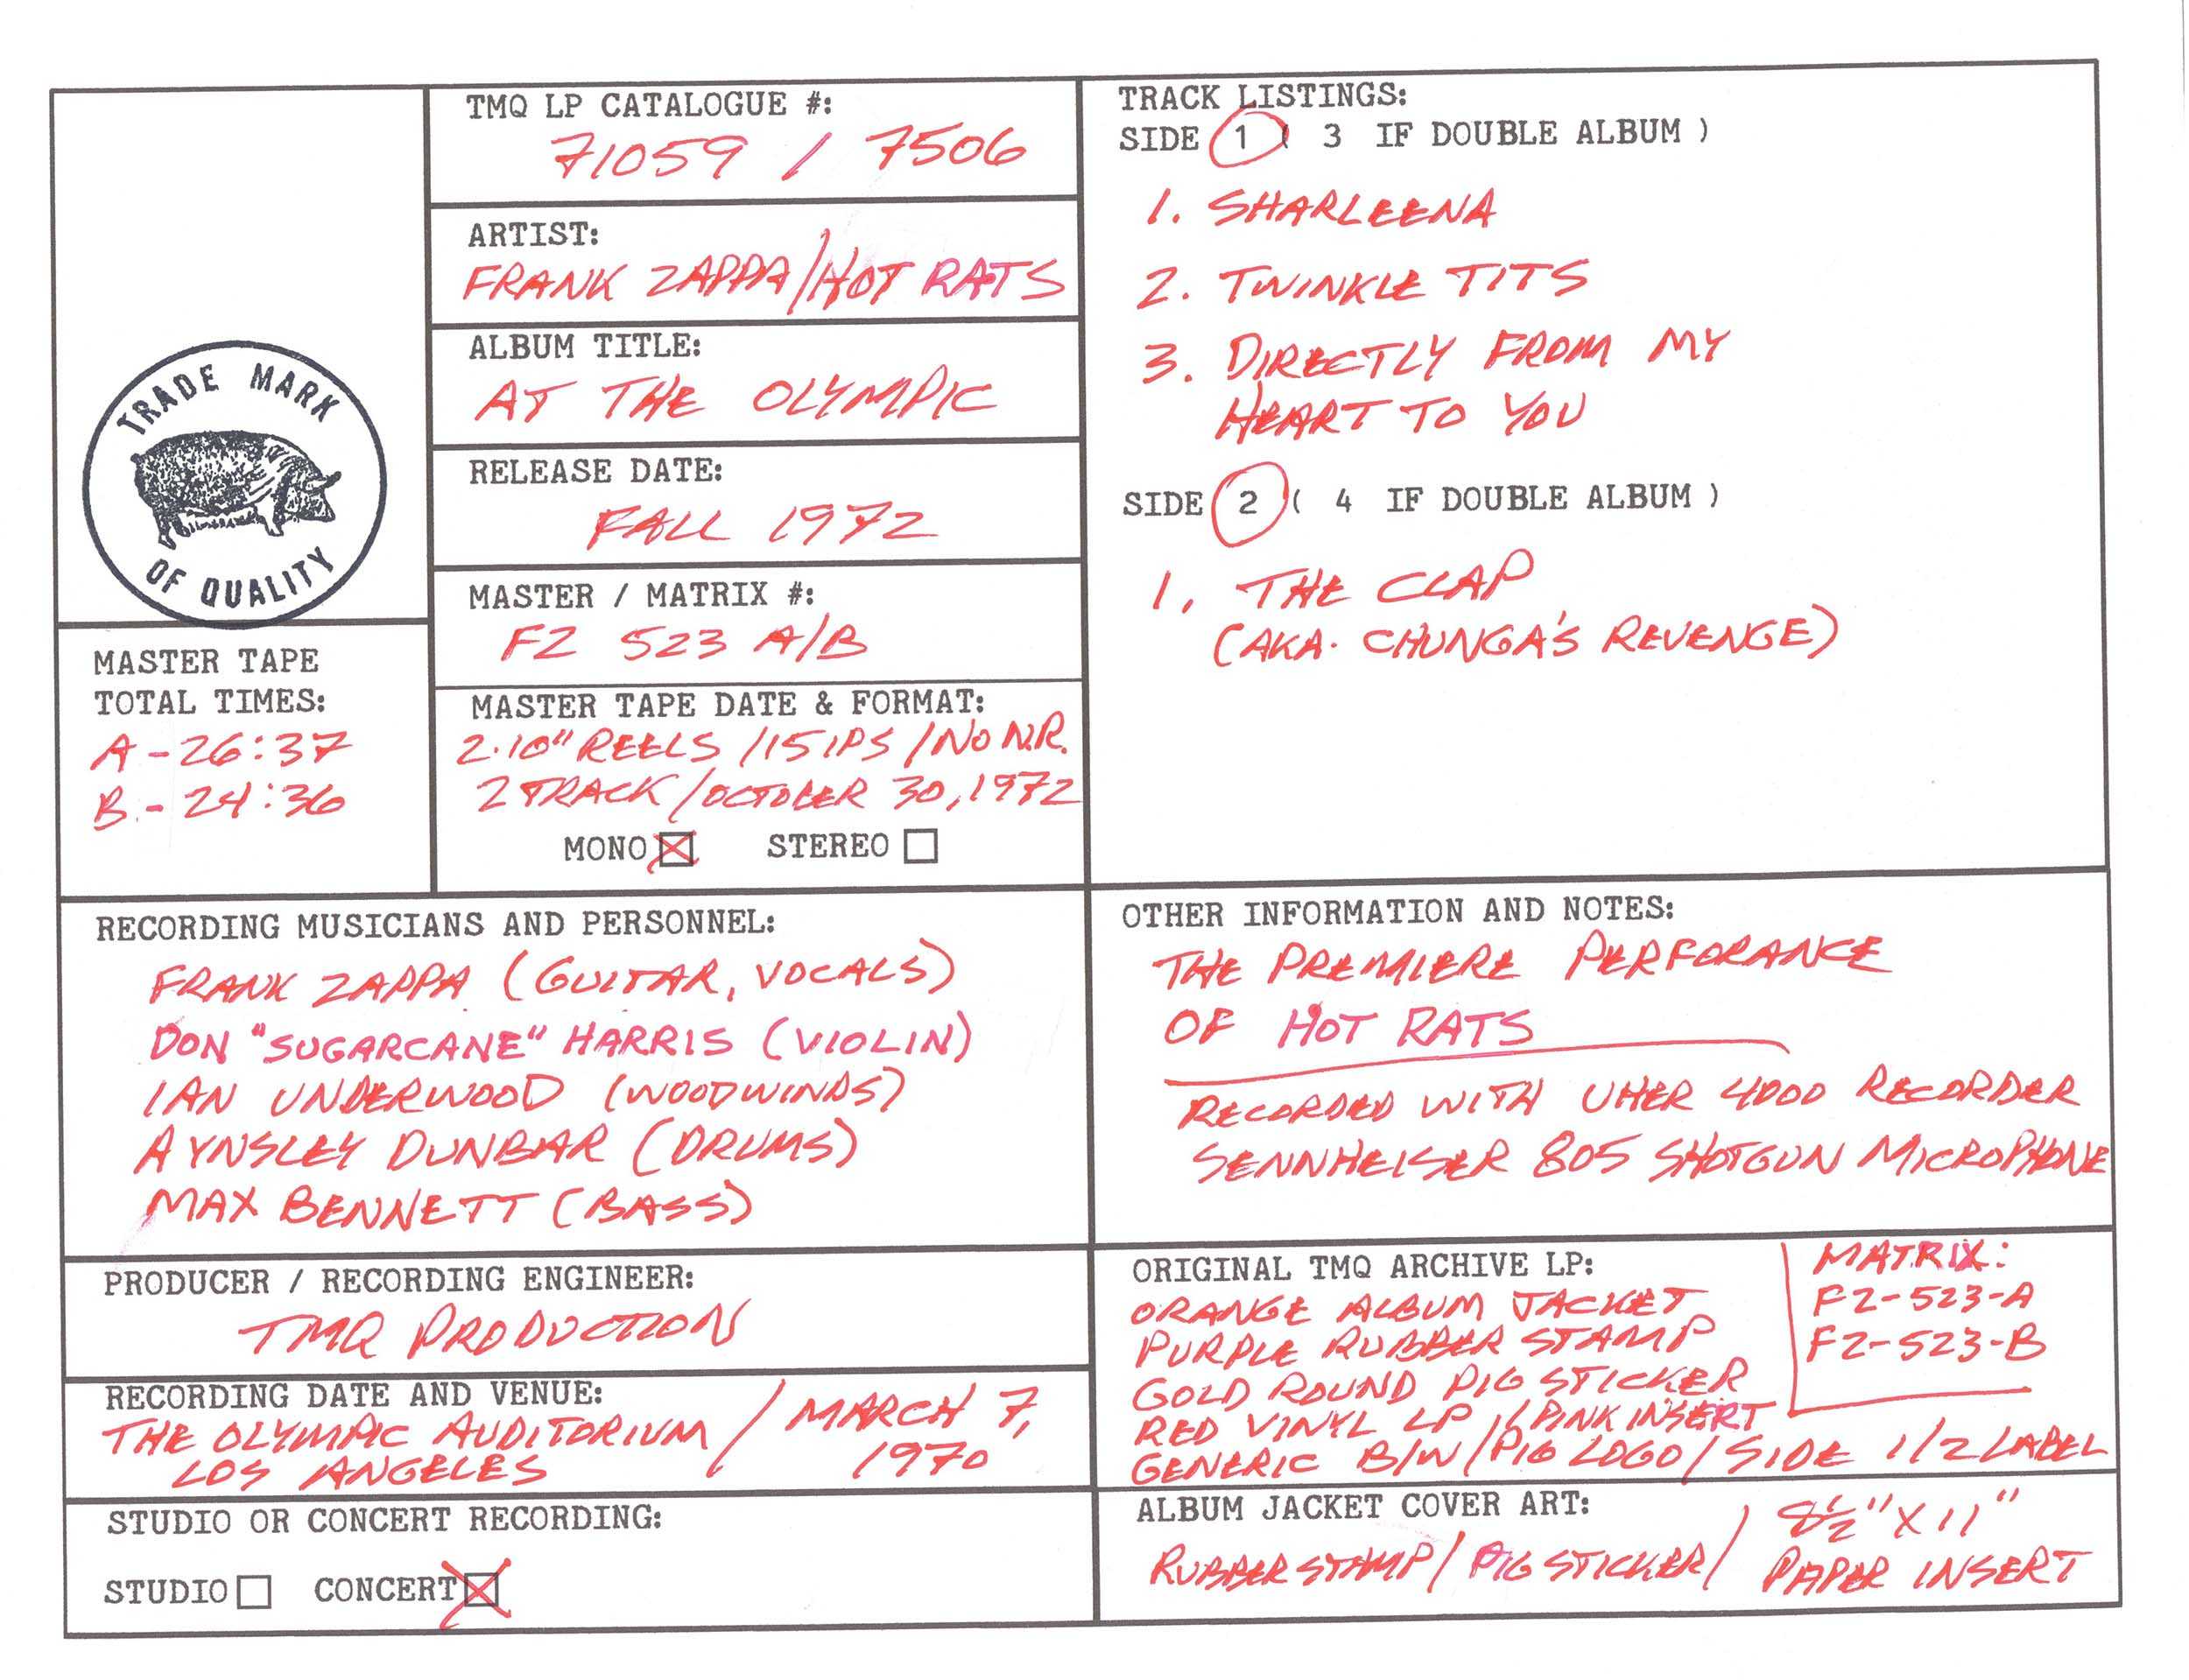 TRADE MARK
OF QUALITY
MASTER TAPE
TOTAL TIMES:
A - 26:37
B. - 24:36
TMQ LP CATALOGUE #:
71059 / 7506
ARTIST:
FRANK ZAPPA/HOT RATS
ALBUM TITLE:
AT THE OLYMPIC
RELEASE DATE:
FALL 1972
MASTER / MATRIX #:
FZ 523 A/B
MASTER TAPE DATE & FORMAT:
2·10" REELS /15 IPS /NO N.R.
2 TRACK / OCTOBER 30, 1972
MONO STEREO
TRACK LISTINGS:
SIDE 1 ( 3 IF DOUBLE ALBUM )
1. SHARLEENA
2. TWINKLE TITS
3. DIRECTLY FROM MY
HEART TO YOU
SIDE 2 ( 4 IF DOUBLE ALBUM )
1, THE CLAP
(AKA. CHUNGA'S REVENGE)
RECORDING MUSICIANS AND PERSONNEL:
FRANK ZAPPA (GUITAR, VOCALS)
DON "SUGARCANE" HARRIS (VIOLIN)
IAN UNDERWOOD (WOODWINDS)
AYNSLEY DUNBAR (DRUMS)
MAX BENNETT (BASS)
OTHER INFORMATION AND NOTES:
THE PREMIERE PERFORANCE
OF HOT RATS
RECORDED WITH UHER 4000 RECORDER
SENNHEISER 805 SHOTGUN MICROPHONE
PRODUCER / RECORDING ENGINEER:
TMQ PRODUCTION
RECORDING DATE AND VENUE:
THE OLYMPIC AUDITORIUM / MARCH 7,
LOS ANGELES 1970
STUDIO OR CONCERT RECORDING:
STUDIO CONCERT
ORIGINAL TMQ ARCHIVE LP:
ORANGE ALBUM JACKET
PURPLE RUBBER STAMP
GOLD ROUND PIG STICKER
RED VINYL LP / PINK INSERT
GENERIC B/W / PIG LOGO / SIDE 1/2 LABEL
MATRIX:
FZ-523-A
FZ-523-B
ALBUM JACKET COVER ART:
RUBBER STAMP / PIG STICKER / 8½" X 11"
PAPER INSERT